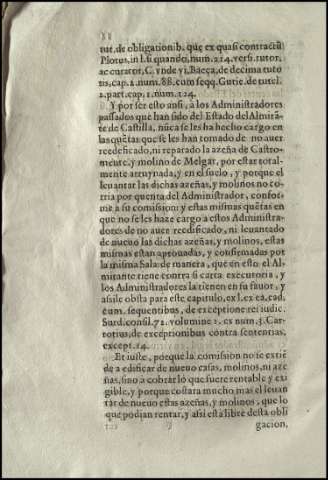 tut. de obligationib. que ex quasi contractu
Pilotus, in l. si quando, num. 214. vers. tutor,
ac curator, C. vnde vi, Baeça, de decima tuto
ris, cap. 2. num. 88. cum seqq. Gutie. de tutel.
2. part. cap. 1. num. 124.
Y por ser esto ansi, a los Administradores
passados que han sido del Estado del Almirã
te de Castilla, nũca se les ha hecho cargo en
las quẽtas que se les han tomado de no auer
reedificado, ni reparado la azeña de Castro-
mente, y molino de Melgar, por estar total-
mente arruynada, y en el suelo, y porque el
leuantar las dichas azeñas, y molinos no co-
rria por quenta del Administrador, confor-
me a su comission: y estas mismas quẽtas en
que no se les haze cargo a estos Administra-
dores de no auer reedificado, ni leuantado
de nueuo las dichas azeñas, y molinos, estas
mismas estan aprouadas, y confirmadas por
la misma Sala: de manera, que en esto el Al-
mirante tiene contra si carta executoria, y
los Administradores la tienen en su fauor, y
assi le obsta por este capitulo, ex l. ex ea, cad.
cum sequentibus, de exceptione rei iudic.
Surd. consil. 72. volumine 1. ex num. 5. Car-
rotius, de exceptionibus contra sententias,
except. 14.
Et iuste, porque la comision no se estiẽ
de a edificar de nueuo casas, molinos, ni aze
ñas, sino a cobrar lo que fuere rentable y exi
gible, y porque costara mucho mas el leuan
tar de nueuo estas azeñas, y molinos, que lo
que podian rentar, y assi està libre desta obli
gacion,